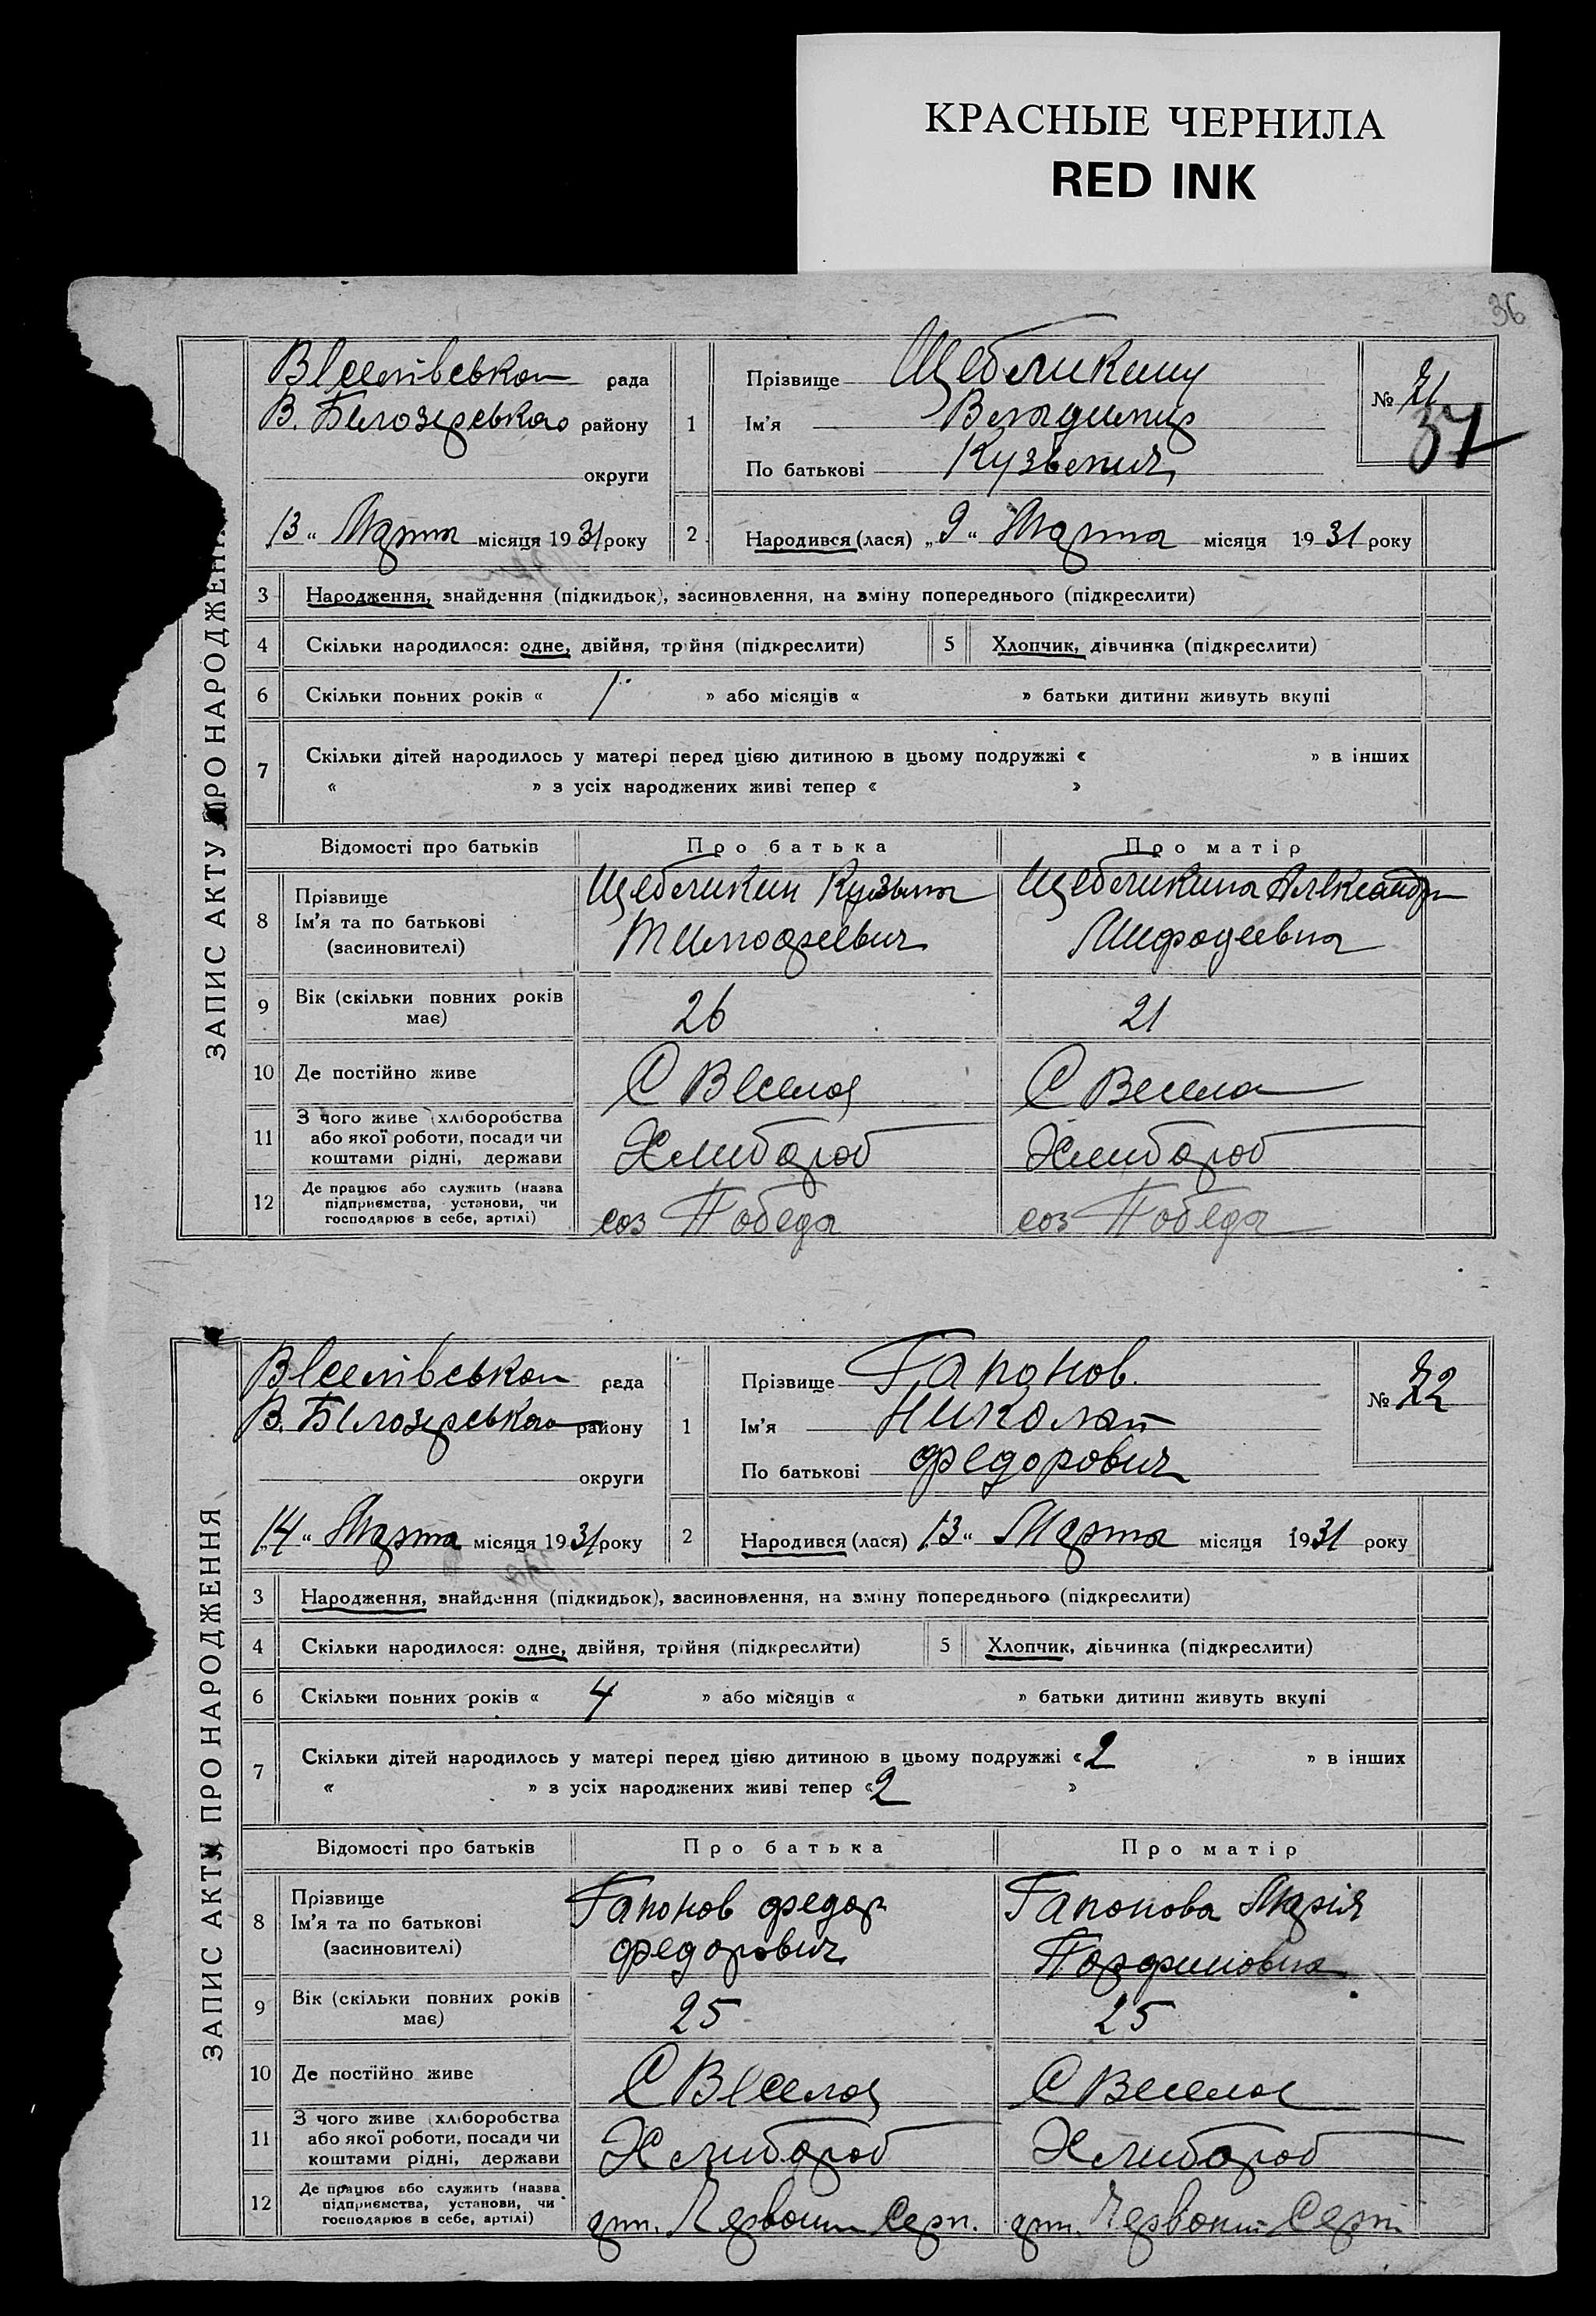 КРАСНЫЕ ЧЕРНИЛА
RED INK
36
ЗАПИС АКТУ ПРО НАРОДЖЕННЯ
Веселівськая рада
В. Білозерськао району
округи
13 " Марта місяця 1931 року
1
Прізвище Щебликину
Ім'я Владимир
По батькові Кузьмич
№ 71
37
2 Народився (лася) „9 " Марта місяця 1931 року
3 Народження, знайдення (підкидьок), засиновлення, на зміну попереднього (підкреслити)
4 Скільки народилося: одне, двійня, трійня (підкреслити) 5 Хлопчик, дівчинка (підкреслити)
6 Скільки повних років « 1 » або місяців « » батьки дитини живуть вкупі
7 Скільки дітей народилось у матері перед цією дитиною в цьому подружжі « » в інших
« » з усіх народжених живі тепер « »
Відомості про батьків Про батька Про матір
8 Прізвище Ім'я та по батькові (засиновителі)
Щебликин Кузьма Тимофеевич
Щебликина Александр Мифодеевна
9 Вік (скільки повних років має) 26 21
10 Де постійно живе С Веселое С Веселое
11 З чого живе (хліборобства або якої роботи, посади чи коштами рідні, держави Хлибороб Хлибороб
12 Де працює або служить (назва підприємства, установи, чи господарює в себе, артілі) соз Победа соз Победа
ЗАПИС АКТУ ПРО НАРОДЖЕННЯ
Веселівськая рада
В. Білозерськао району
округи
14 " Марта місяця 1931 року
1
Прізвище Гапонов.
Ім'я Николай
По батькові Федорович
№ 72
2 Народився (лася) 13 " Марта місяця 1931 року
3 Народження, знайдення (підкидьок), засиновлення, на зміну попереднього (підкреслити)
4 Скільки народилося: одне, двійня, трійня (підкреслити) 5 Хлопчик, дівчинка (підкреслити)
6 Скільки повних років « 4 » або місяців « » батьки дитини живуть вкупі
7 Скільки дітей народилось у матері перед цією дитиною в цьому подружжі « 2 » в інших
« » з усіх народжених живі тепер « 2 »
Відомості про батьків Про батька Про матір
8 Прізвище Ім'я та по батькові (засиновителі)
Гапонов Федор Федорович
Гапонова Марія Парфиновна
9 Вік (скільки повних років має) 25 25
10 Де постійно живе С Веселое С Веселое
11 З чого живе (хліборобства або якої роботи, посади чи коштами рідні, держави Хлибороб Хлибороб
12 Де працює або служить (назва підприємства, установи, чи господарює в себе, артілі) арт. Червоний Серп. арт. Червоний Серп